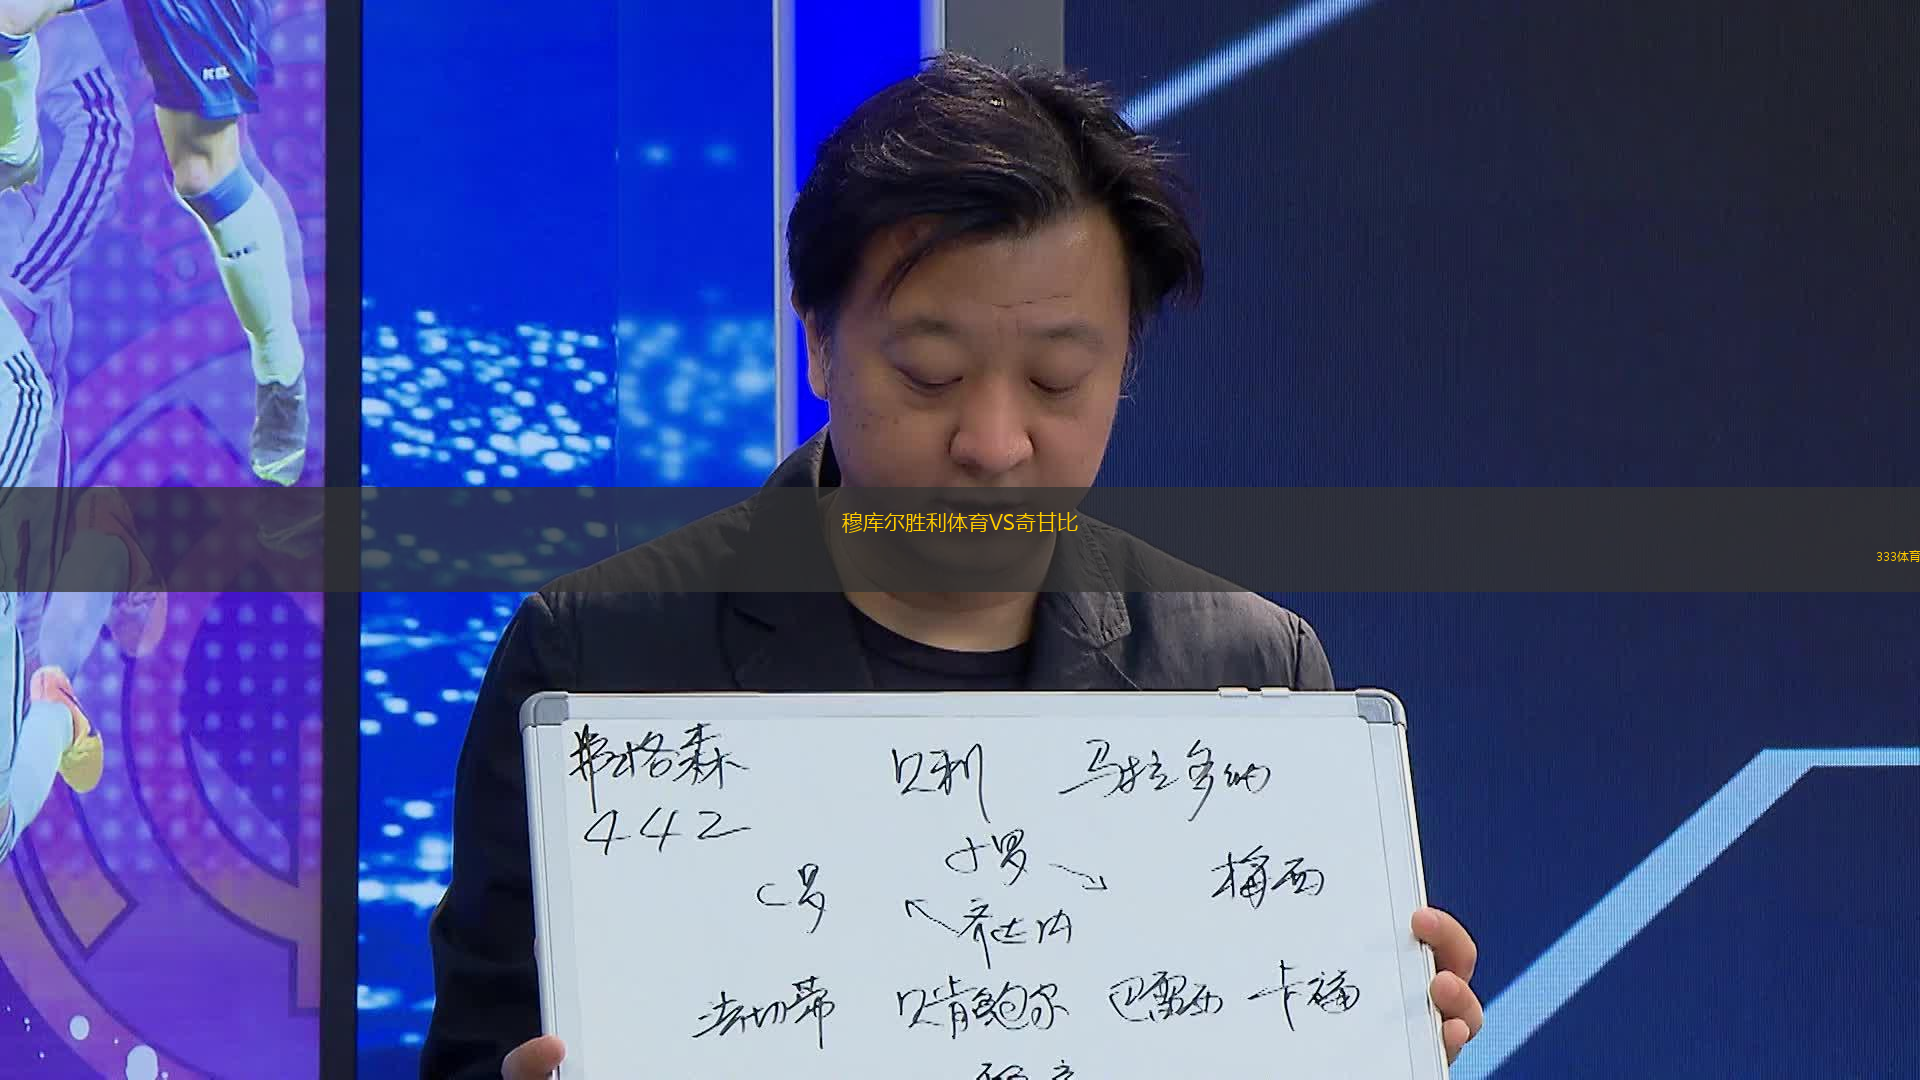 KELME
穆库尔胜利体育VS奇甘比
333体育
弗格森 贝利 马拉多纳
442
小罗
C罗 梅西
齐达内
法切蒂 贝肯鲍尔 巴雷西 卡福